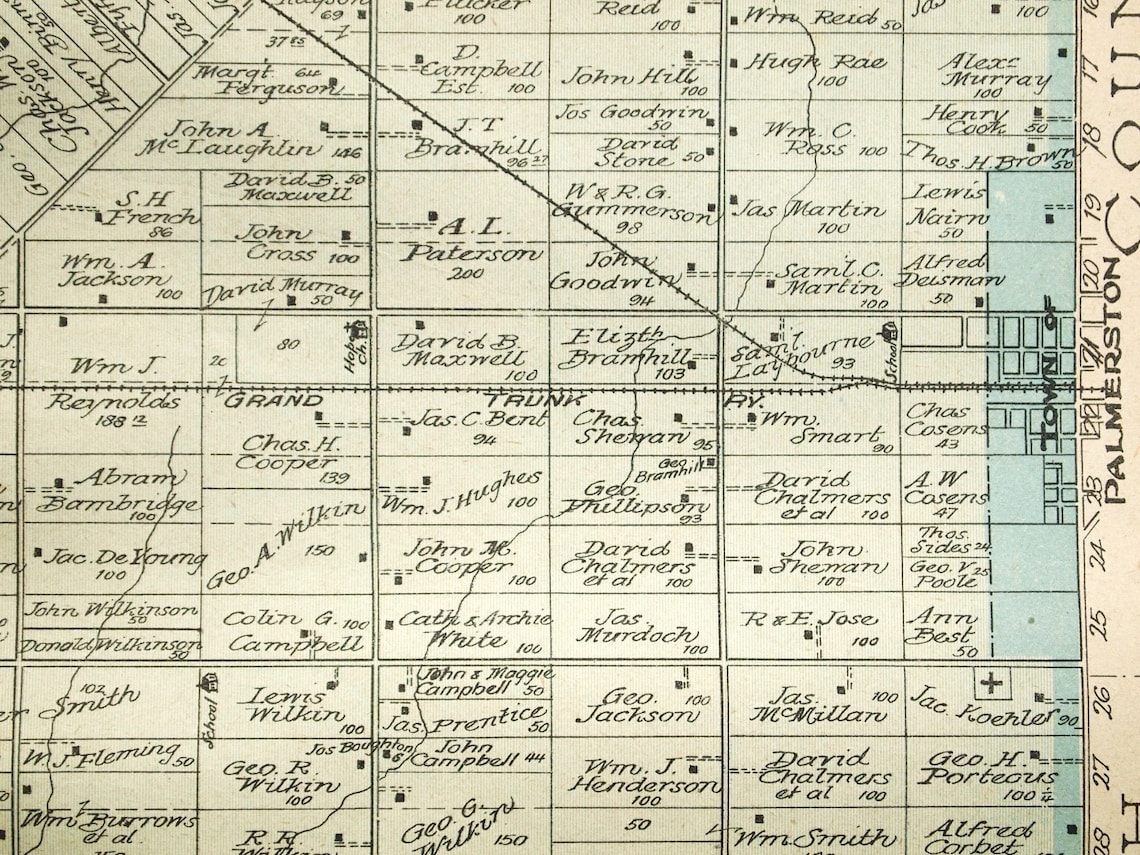 69
37 85
Fletcher
100
Reid
100
Wm Reid 50
Jas
100
16
Margt. 64
Ferguson
D.
Campbell
Est. 100
John Hill
100
Hugh Rae
100
Alexr
Murray
100
17
Henry
Jackson
100
Chas. W.
Jas.
Geo.
John A.
McLaughlin 146
J.T
Bramhill
96 27
Jos Goodwin
50
David
Stone 50
Wm. C.
Ross 100
Henry
Cook 50
Thos. H. Brown
50
18
S. H
French
86
David B. 50
Maxwell
John
Cross 100
A. L.
Paterson
200
W & R. G.
Gummerson
98
Jas Martin
100
Lewis
Nairn
50
19
Wm. A.
Jackson
100
David Murray
50
John
Goodwin
94
Saml. C.
Martin
100
Alfred
Deisman
50
20
COUN
Wm J.
Reynolds
188 12
80
Hope
Ch.
David B.
Maxwell
100
Elizth.
Bramhill
103
Saml.
Laybourne
93
School
TOWN OF
PALMERSTON
21
GRAND TRUNK RY.
Chas. H.
Cooper
139
Jas. C. Bent
94
Chas.
Sherran
95
Wm.
Smart
90
Chas
Cosens
43
22
Abram
Bambridge
100
Wm. J. Hughes
100
Geo.
Bramhill
Geo.
Phillipson
93
David
Chalmers
et al 100
A. W
Cosens
47
23
Jac. De Young
100
Geo. A. Wilkin
150
John M.
Cooper
100
David
Chalmers
et al 100
John
Sherran
100
Thos.
Sides 24
Geo. V. 25
Poole
24
John Wilkinson
50
Donald Wilkinson
50
Colin G. 100
Campbell
Cath & Archie
White 100
Jas.
Murdoch
100
R & E. Jose
100
Ann
Best
50
25
102
Smith
School
Lewis
Wilkin
100
John & Maggie
Campbell 50
Jas. Prentice
50
Geo. 100
Jackson
Jas. 100
McMillan
Jac. Koehler 90
26
W. J. Fleming
50
Jos Boughton
6
Geo. R
Wilkin
100
John
Campbell 44
Wm. J.
Henderson
100
David
Chalmers
et al 100
Geo. H.
Porteous
100 1/4
27
Wm Burrows
et al.
150
R R
Wilkin
Geo. G.
Wilkin
150
50
Wm. Smith
Alfred
Corbet
28